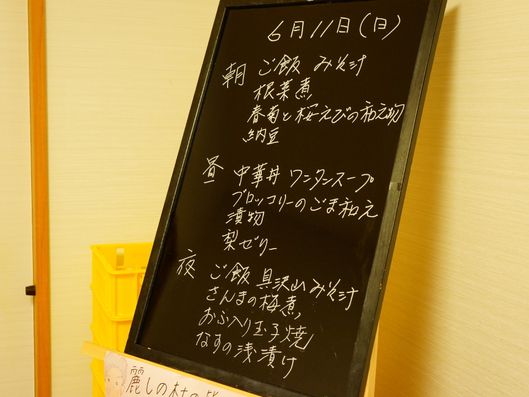 6月11日(日)
朝 ご飯 みそ汁
根菜煮
春菊と桜えびの和え物
納豆
昼 中華丼 ワンタンスープ
ブロッコリーのごま和え
漬物
梨ゼリー
夜 ご飯 具沢山みそ汁
さんまの梅煮
おふ入り玉子焼
なすの浅漬け
麗しの杜の